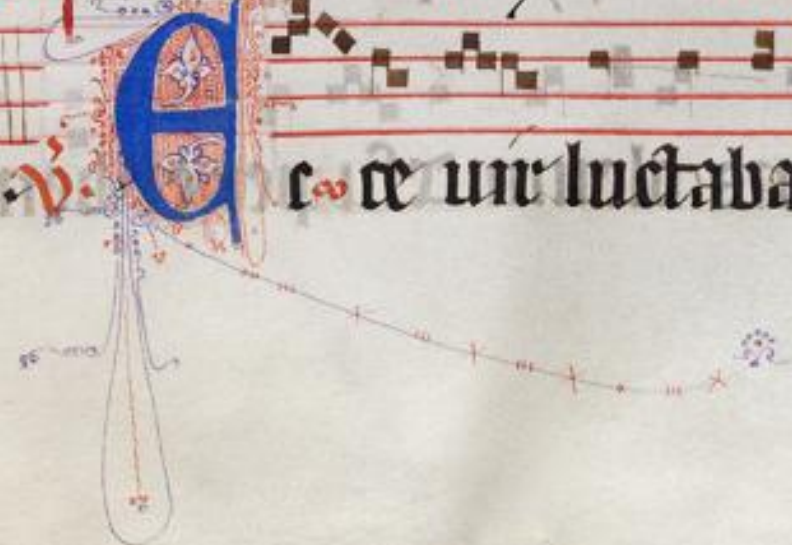 ℣. Ec ce uir luctaba